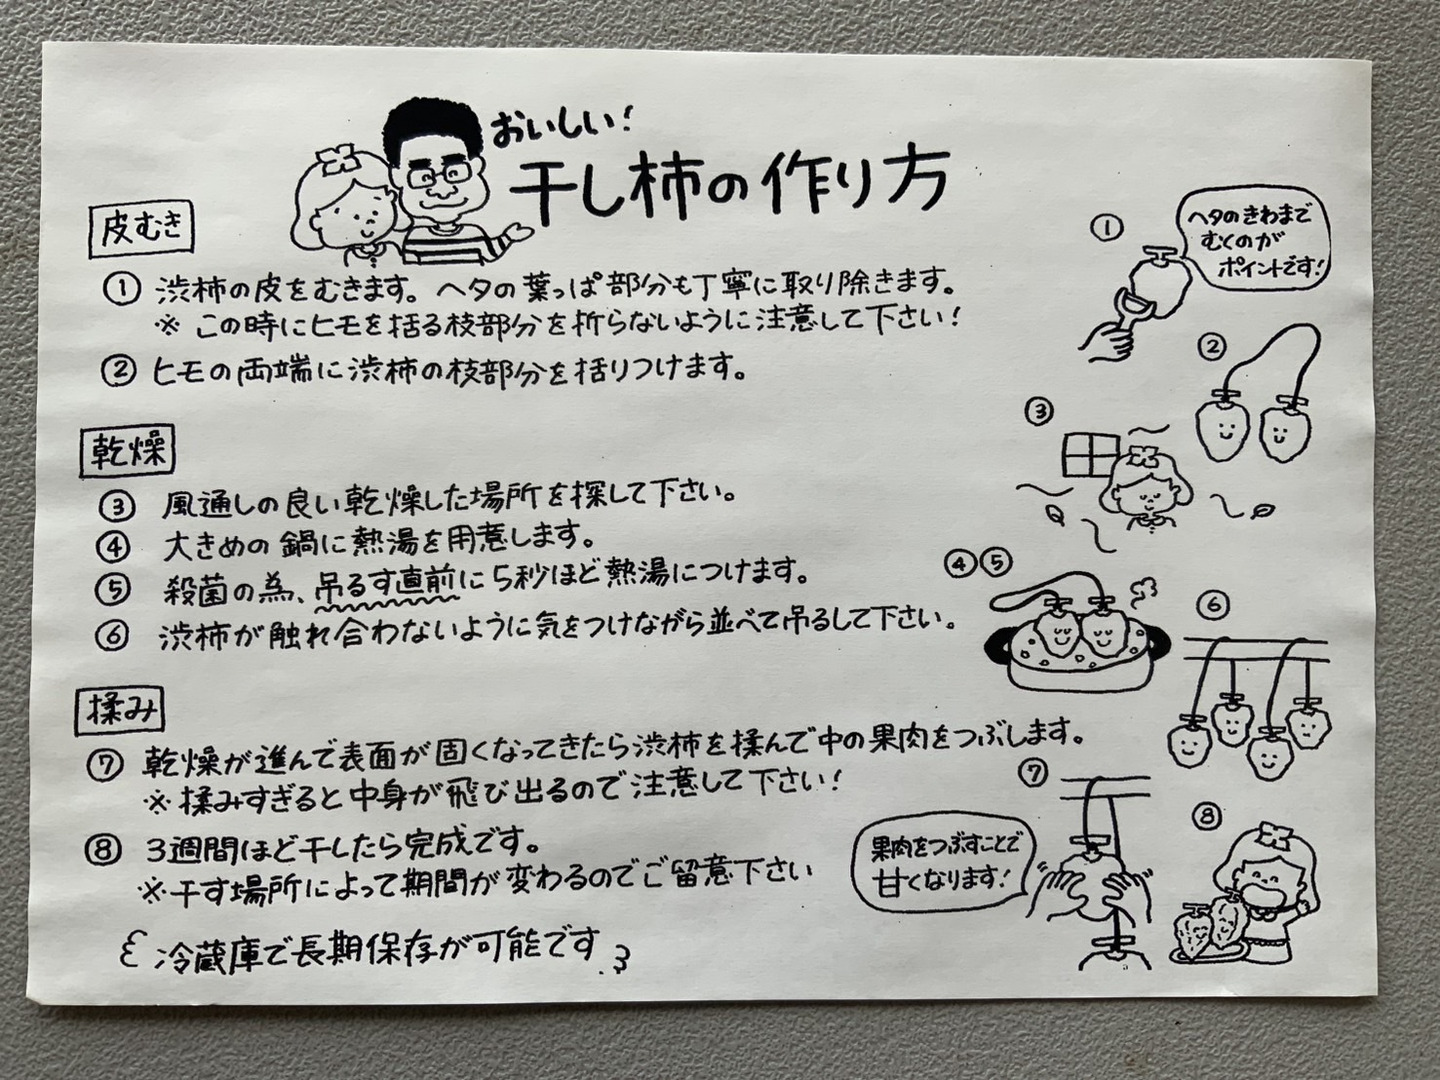 おいしい!
干し柿の作り方
皮むき
① 渋柿の皮をむきます。ヘタの葉っぱ部分も丁寧に取り除きます。
※ この時にヒモを括る枝部分を折らないように注意して下さい!
② ヒモの両端に渋柿の枝部分を括りつけます。
乾燥
③ 風通しの良い乾燥した場所を探して下さい。
④ 大きめの鍋に熱湯を用意します。
⑤ 殺菌の為、吊るす直前に5秒ほど熱湯につけます。
⑥ 渋柿が触れ合わないように気をつけながら並べて吊るして下さい。
揉み
⑦ 乾燥が進んで表面が固くなってきたら渋柿を揉んで中の果肉をつぶします。
※ 揉みすぎると中身が飛び出るので注意して下さい!
⑧ 3週間ほど干したら完成です。
※干す場所によって期間が変わるのでご留意下さい
冷蔵庫で長期保存が可能です
①
ヘタのきわまで
むくのが
ポイントです!
②
③
④⑤
⑥
⑦
果肉をつぶすことで
甘くなります!
⑧